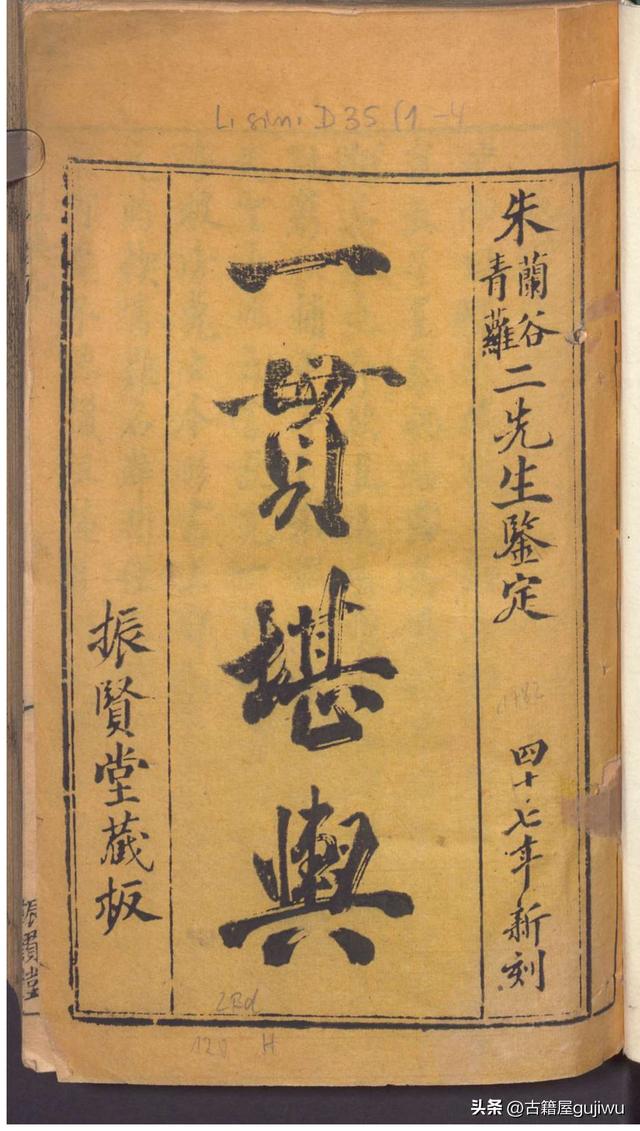 L. sin. D 35 (1-4
朱蘭谷青蘿二先生鑒定
四十七年新刻
一貫堪輿
振賢堂藏板
1782
振賢堂
2Bd
120 H
头条 @古籍屋gujiwu